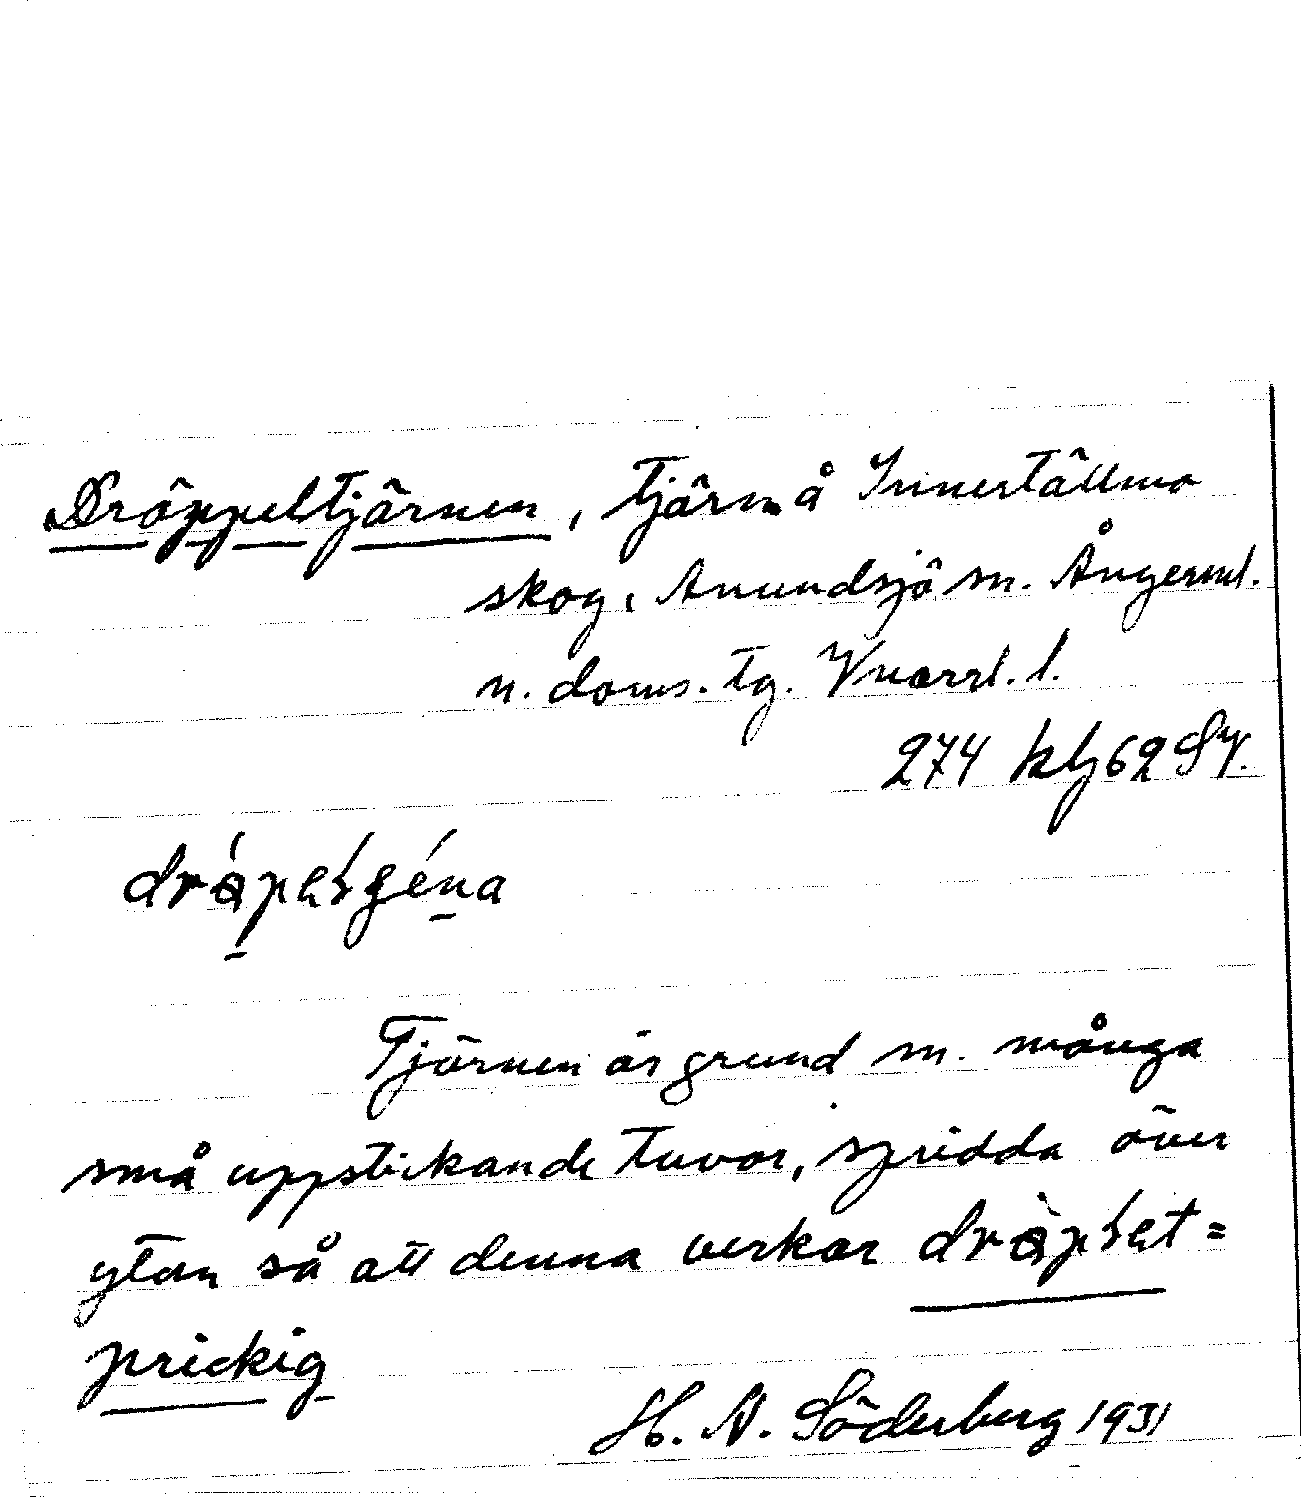 Dröppeltjärnen, tjärn å Innertällmo
skog, Anundsjö sn. Ångerml.
n. doms. tg.
274 klj 62 SV.
Tjärnen är grund m. många
små uppstickande tuvor, spridda över
ytan så att denna verkar dräplet=
prickig
H. N. Söderberg 1931